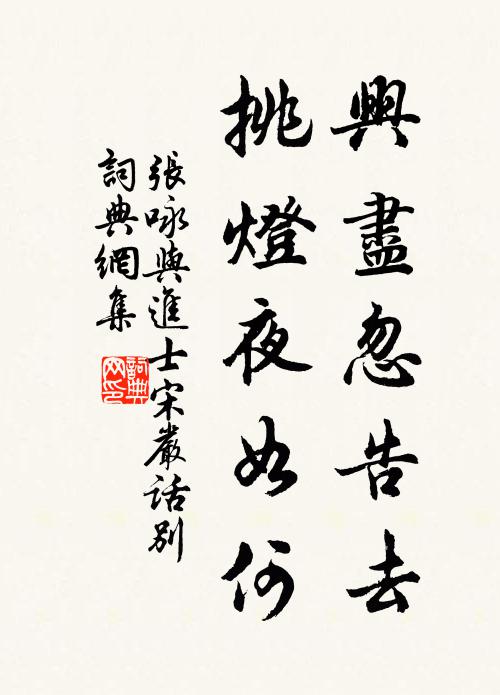 興盡忽告去
挑燈夜如何
張咏與進士宋嚴話別
詞典網集
詞典網印